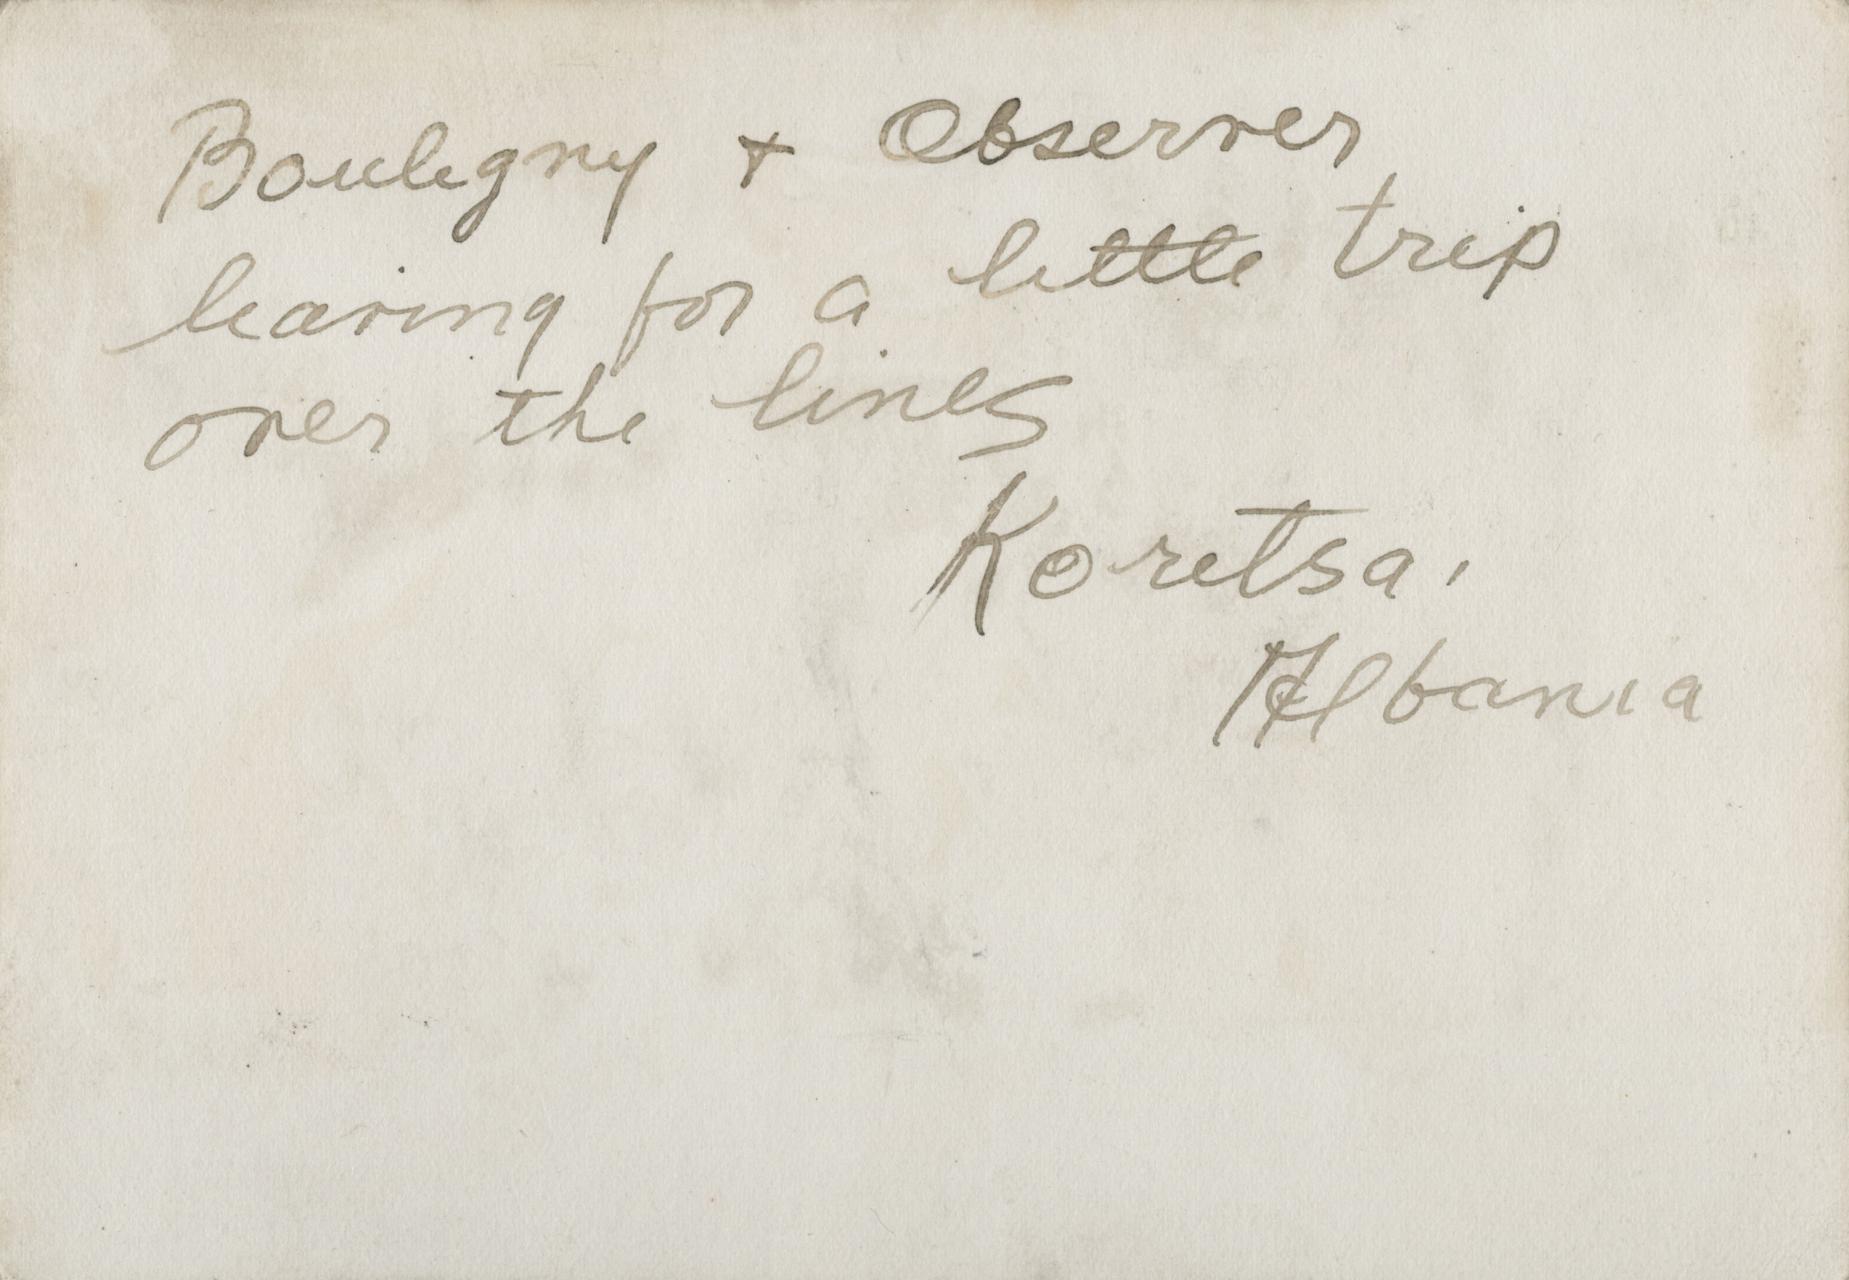 Bouligny + Observer
leaving for a little trip
over the lines
Koretsa,
Albania